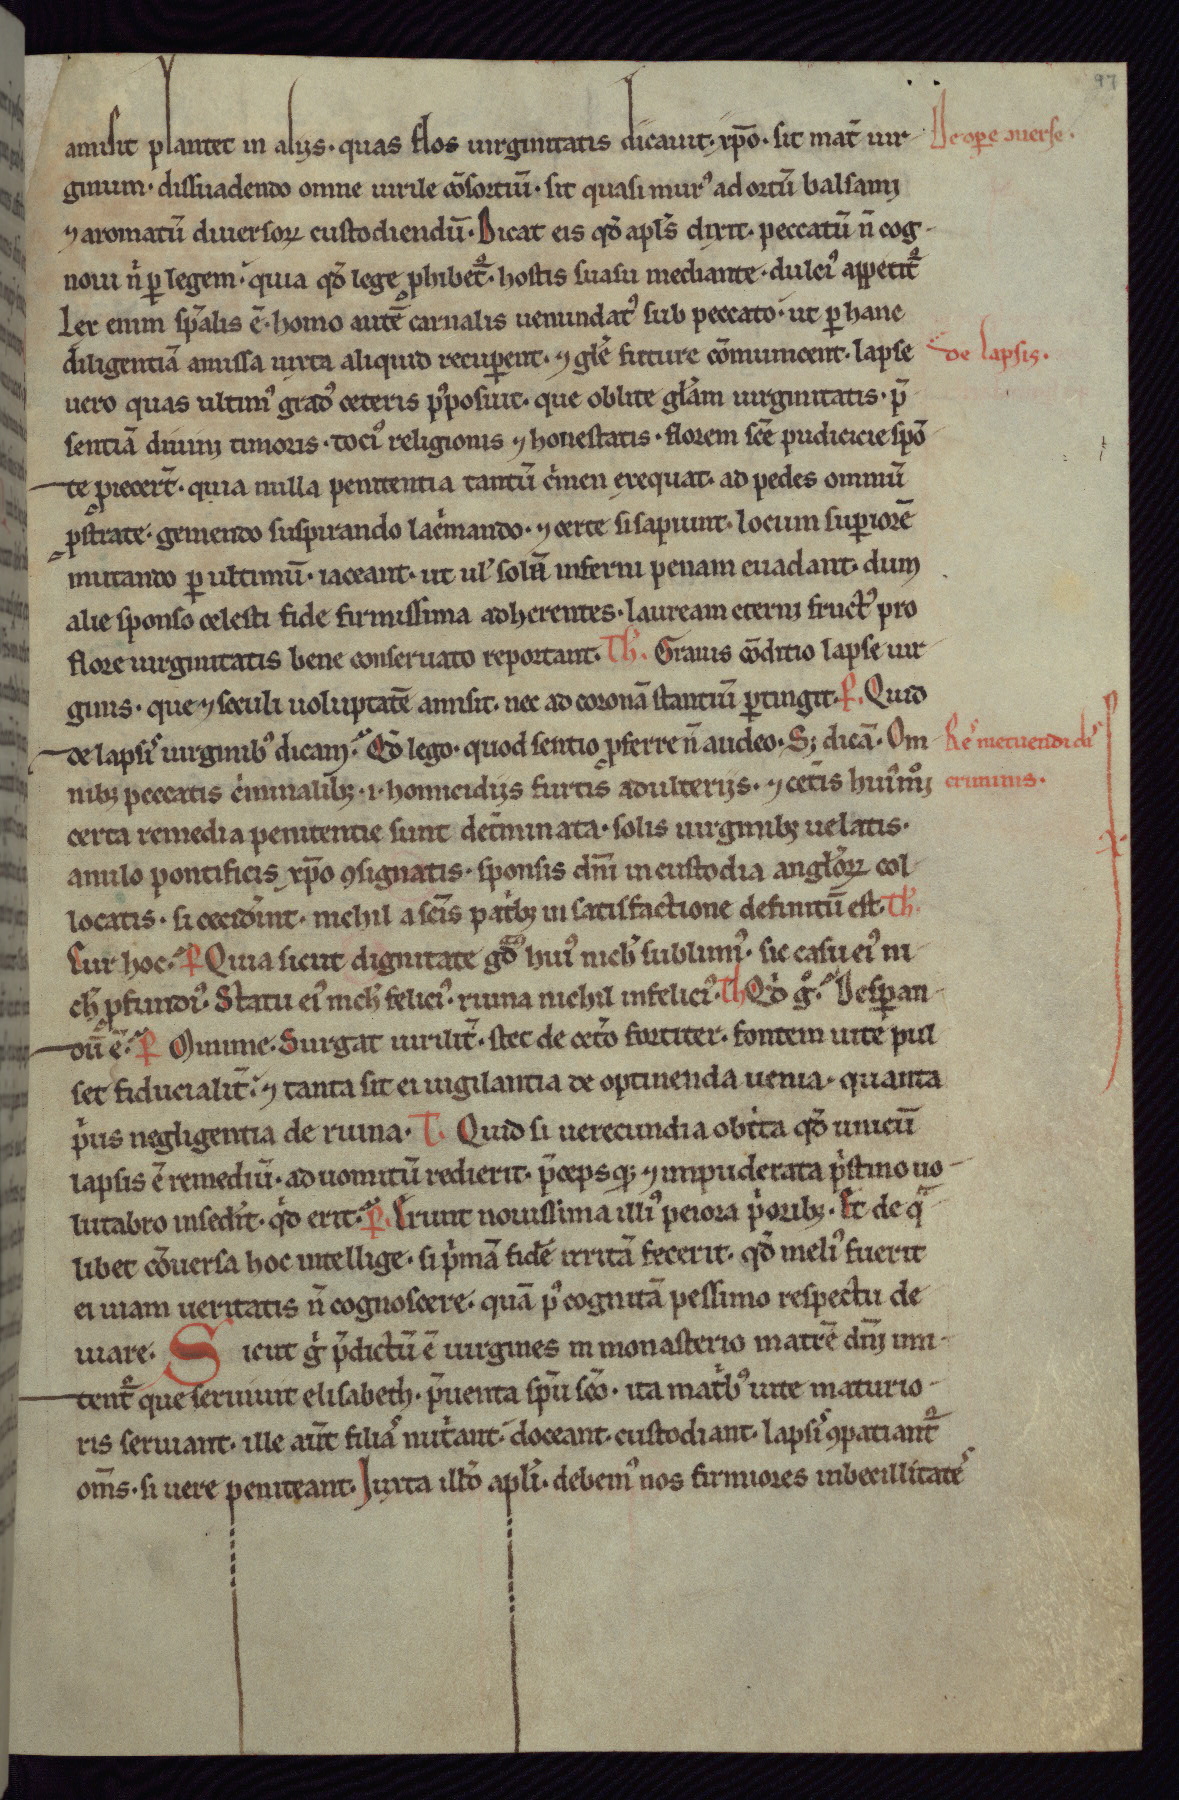 97
amisit plantet in aliis · quas flos uirginitatis dicauit · xp̄o · sit mat̄ uir
De oꝑe ꝯuerse ·
ginum · dissuadendo omne uirile cōsortiū · sit quasi mur᷒ ad ortū balsami
⁊ aromatū diuersoꝝ custodiendū · Dicat eis qđ apl̄s dixit · peccatū n̄ cog
noui nͥ ꝑ legem · quia qđ lege ꝓhibet᷑ · hostis suasu mediante · dulci᷒ appetit᷑
Lex enim sp̄alis ē · homo autē carnalis uenundat᷒ sub peccato · ut ꝑ hanc
diligentiā amissa iuxta aliquid recuꝑent · ⁊ gl̄e future cōmunicent · lapse
de lapsis ·
uero quas ultim᷒ grad᷒ ceteris p᷒posuit · que oblite gl̄am uirginitatis · p̄
sentiā diuini timoris · toci᷒ religionis ⁊ honestatis · florem sc̄e pudicicie spō
te ꝓiecer̄t · quia nulla penitentia tantū cͥmen exequat · ad pedes omniū
ꝓstrate · gemendo suspirando lacͥmando · ⁊ certe si sapiunt · locum suꝑiorē
mutando ꝑ ultimū · iaceant · ut ul̄ solū inferni penam euadant · dum
alie sponso celesti fide firmissima adherentes · lauream eterni fruct᷒ pro
flore uirginitatis bene conseruato reportant · Th̄ · Grauis cōditio lapse uir
ginis · que ⁊ seculi uoluptatē amisit · nec ad coronā stantiū ꝑtingit · P̄ · Quid
de lapsis uirginib᷒ dicam · Qđ lego · quod sentio ꝓferre n̄ audeo · Sꝫ dicā · Om
Res metuendi cās
nibꝫ peccatis cͥminalibꝫ · i · homicidiis furtis adulteriis · ⁊ cet̄is hui᷒modi
criminis ·
certa remedia penitentie sunt det̄minata · solis uirginibꝫ uelatis ·
anulo pontificis xp̄o ꝯsignatis · sponsis dn̄i in custodia angl̄oꝝ col
locatis · si cecideͬint · nichil a sc̄is patͥbꝫ in satisfactione definitū est · Th̄ ·
Cur hoc · P̄ Quia sicut dignitate gͣdu hui᷒ nich̄ sublimi᷒ · sic casu ei᷒ ni
ch̄ ꝓfundi᷒ · Statu ei᷒ nich̄ felici᷒ · ruina nichil infelici᷒ · Th̄ Qͥd gͦ · Desꝑan
dū ē · P̄ Minime · Surgat uirilit̄ · stet de cet̄o fortiter · fontem uite pul
set fiducialit̄ · ⁊ tanta sit ei uigilantia de optinenda uenia · quanta
pͥus negligentia de ruina · T · Quid si uerecundia obͥta qđ unicū
lapsis ē remediū · ad uomitū redierit · p̄cepsqꝫ ⁊ impuderata pͥstino uo
lutabro insedͥt · qͥd erit · P̄ · Erunt nouissima illi᷒ peiora pͥoribꝫ · Et de qͣ
libet cōuersa hoc intellige · si pͥmā fidē irritā fecerit · qđ meli᷒ fuerit
ei uiam ueritatis n̄ cognoscere · quā p᷒ cognitā pessimo respectu de
uiare · Sicut gͥ p̄dictū ē uirgines in monasterio matrē dn̄i imi
tent᷑ que seruiuit elisabeth · p̄uenta sp̄u sc̄o · ita matͥb᷒ uite maturio
ris seruiant · ille aūt filias nutͥant · doceant · custodiant · lapsis ꝯpatiant᷑
om̄s · si uere peniteant · Iuxta illđ apl̄i · debem᷒ nos firmiores inbecillitates